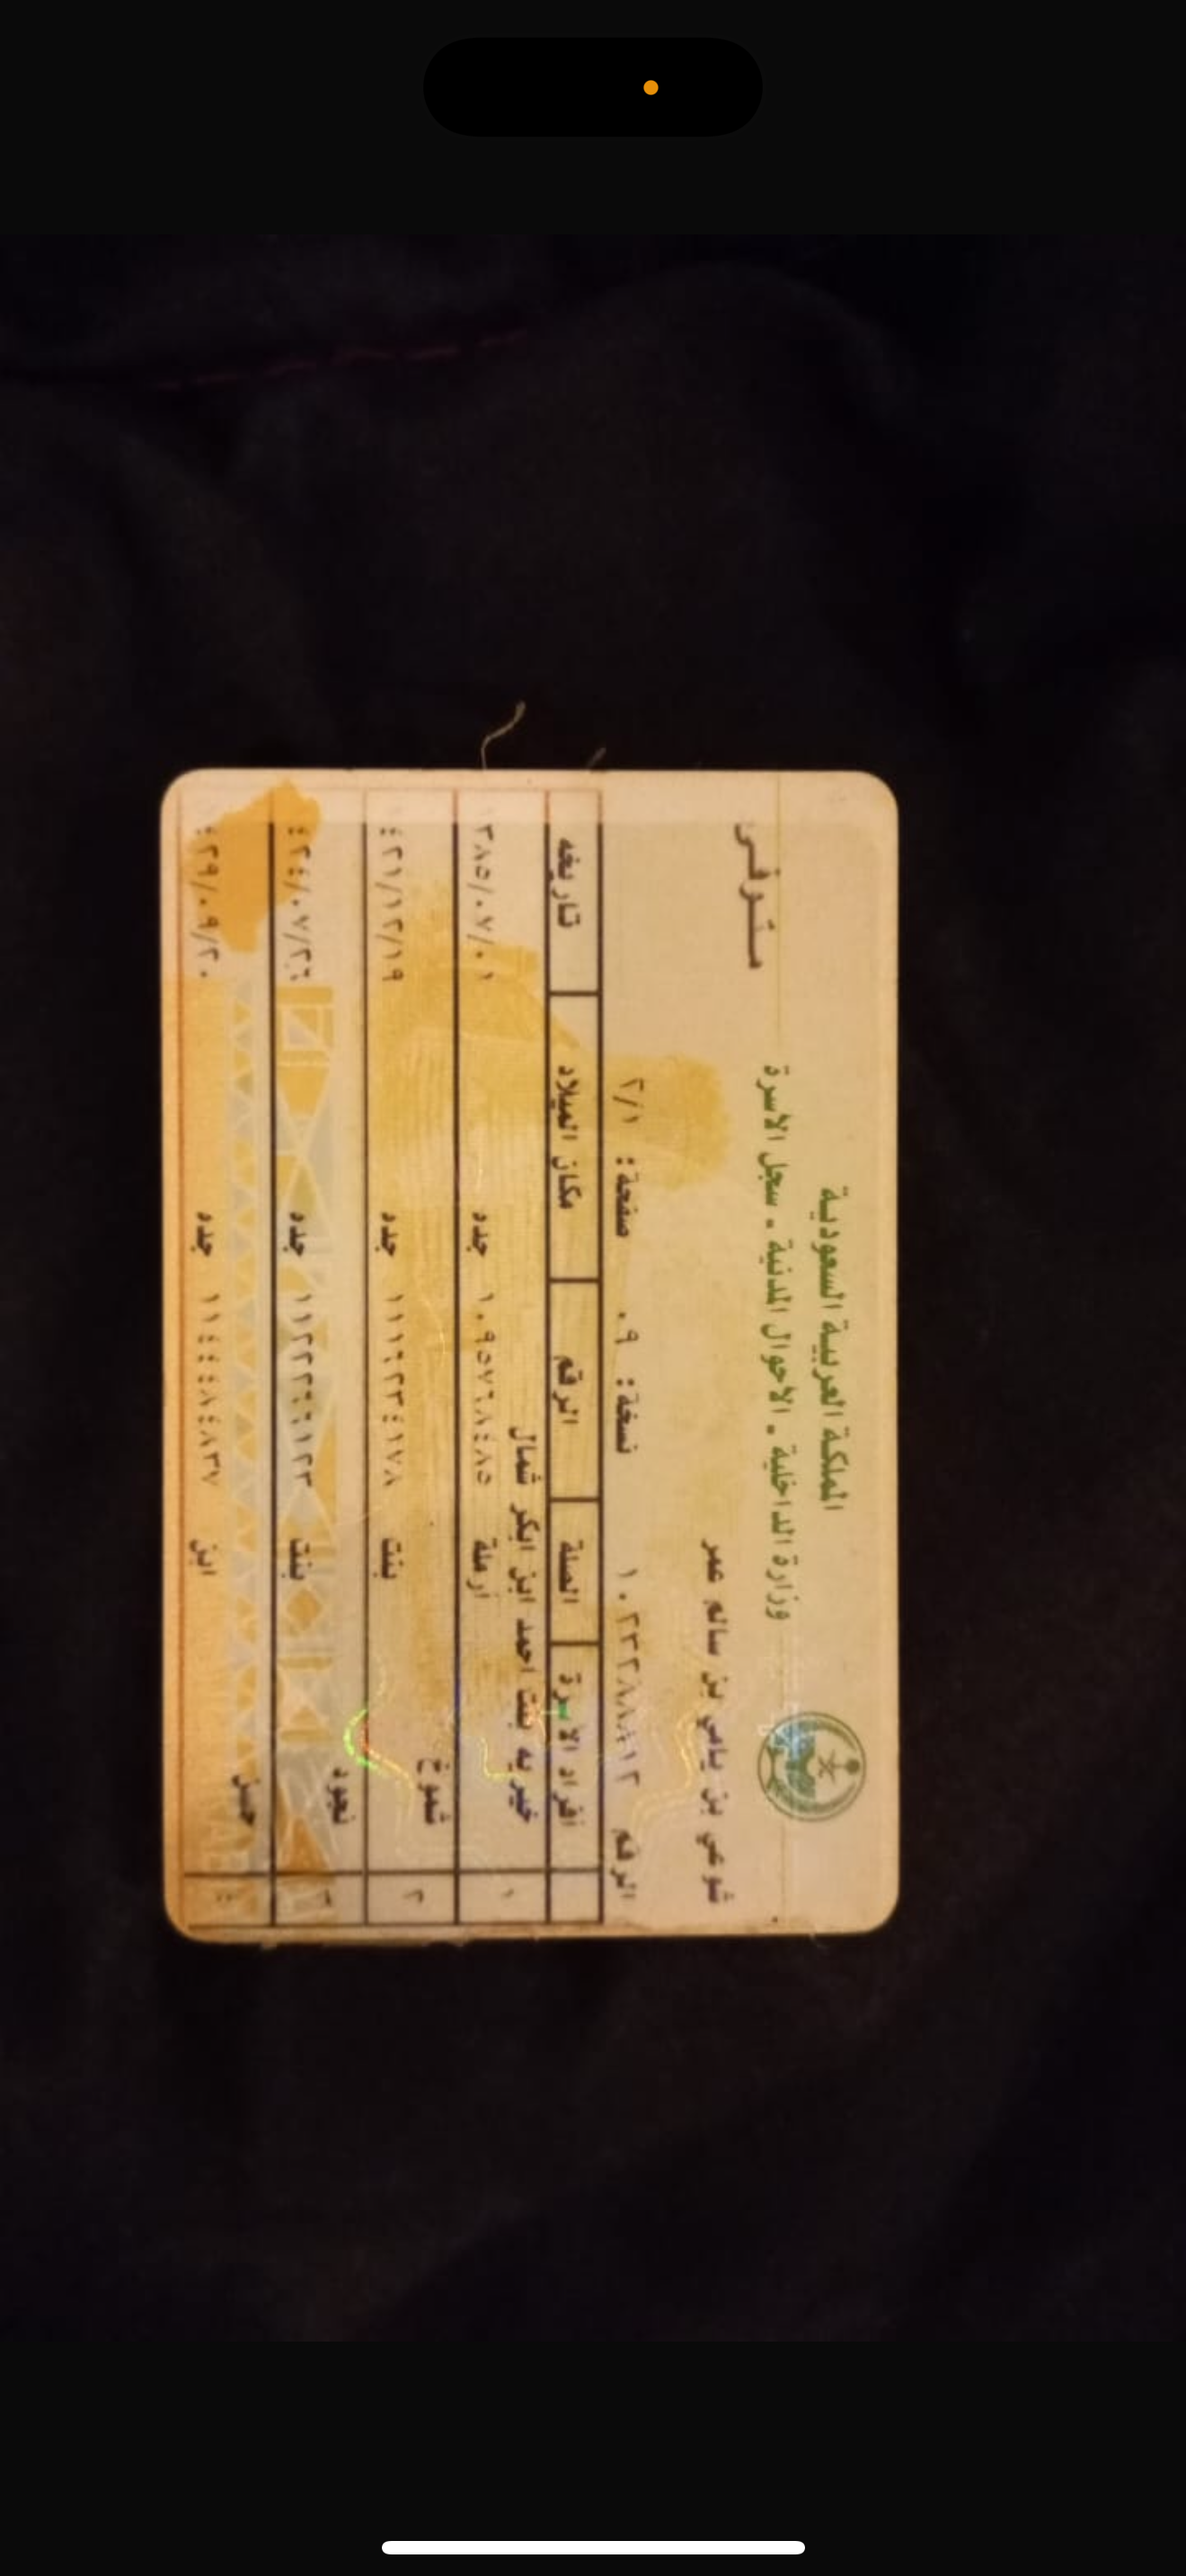 المملكة العربية السعودية
وزارة الداخلية - الأحوال المدنية - سجل الأسرة
متوفى
شوعي بن يامي بن سالم عمر
الرقم ١٠٢٣٢٨٨٨١٢ نسخة: ٠٩ صفحة: ٢/١
افراد الاسرة الصلة الرقم مكان الميلاد تاريخه
١ خيريه بنت احمد ابن ابكر شمال
ارملة ١٠٩٥٧٦٨٤٨٥ جده ٣٨٥/٠٧/٠١
٢ شموخ
بنت ١١١٦٢٣٤١٧٨ جده ٤٢١/١٢/١٩
٣ نجود
بنت جده
٤ حسن
ابن ١١٤٤٤٨٤٨٣٧ جده ٤٢٩/٠٩/٢٠